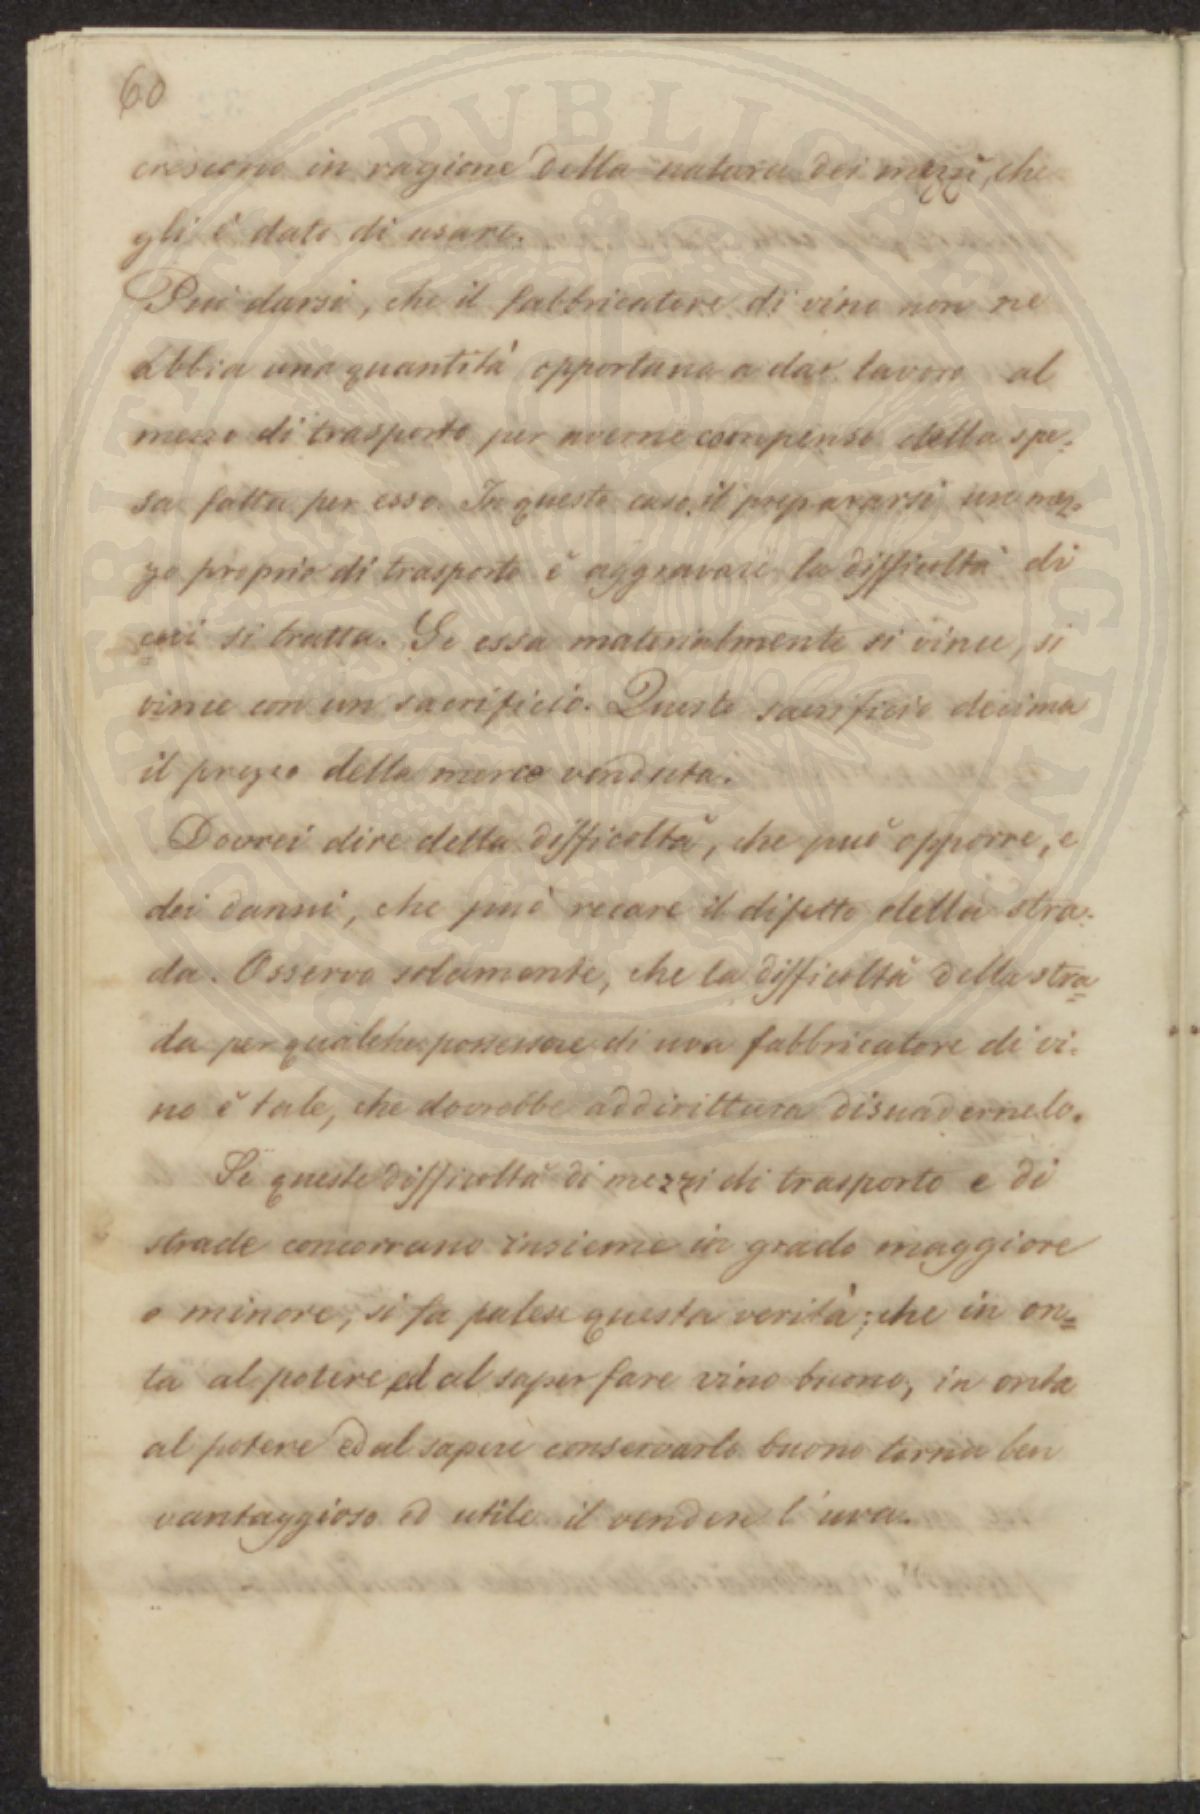 60
crescono in ragione della natura dei mezzi, che
gli è dato di usare.
Può darsi, che il fabbricatore di vino non ne
abbia una quantità opportuna a dar lavoro al
mezzo di trasporto per averne compenso della spe-
sa fatta per esso. In questo caso il prepararsi un mez-
zo proprio di trasporto è aggravare la difficoltà di
cui si tratta. Se essa materialmente si vince, si
vince con un sacrificio. Questo sacrificio decima
il prezzo della merce venduta.
Dovrei dire della difficoltà, che può opporre, e
dei danni, che può recare il difetto della stra-
da. Osservo solamente, che la difficoltà della stra=
da per qualche possessore di uva fabbricatore di vi-
no è tale, che dovrebbe addirittura disuadernelo.
Se queste difficoltà di mezzi di trasporto e di
strade concorrano insieme in grado maggiore
o minore, si fa palese questa verità; che in on=
ta al potere ed al saper fare vino buono, in onta
al potere ed al sapere conservarlo buono torna ben
vantaggioso ed utile il vendere l'uva.
PROSPERITATI PVBLICAE AVGENDAE